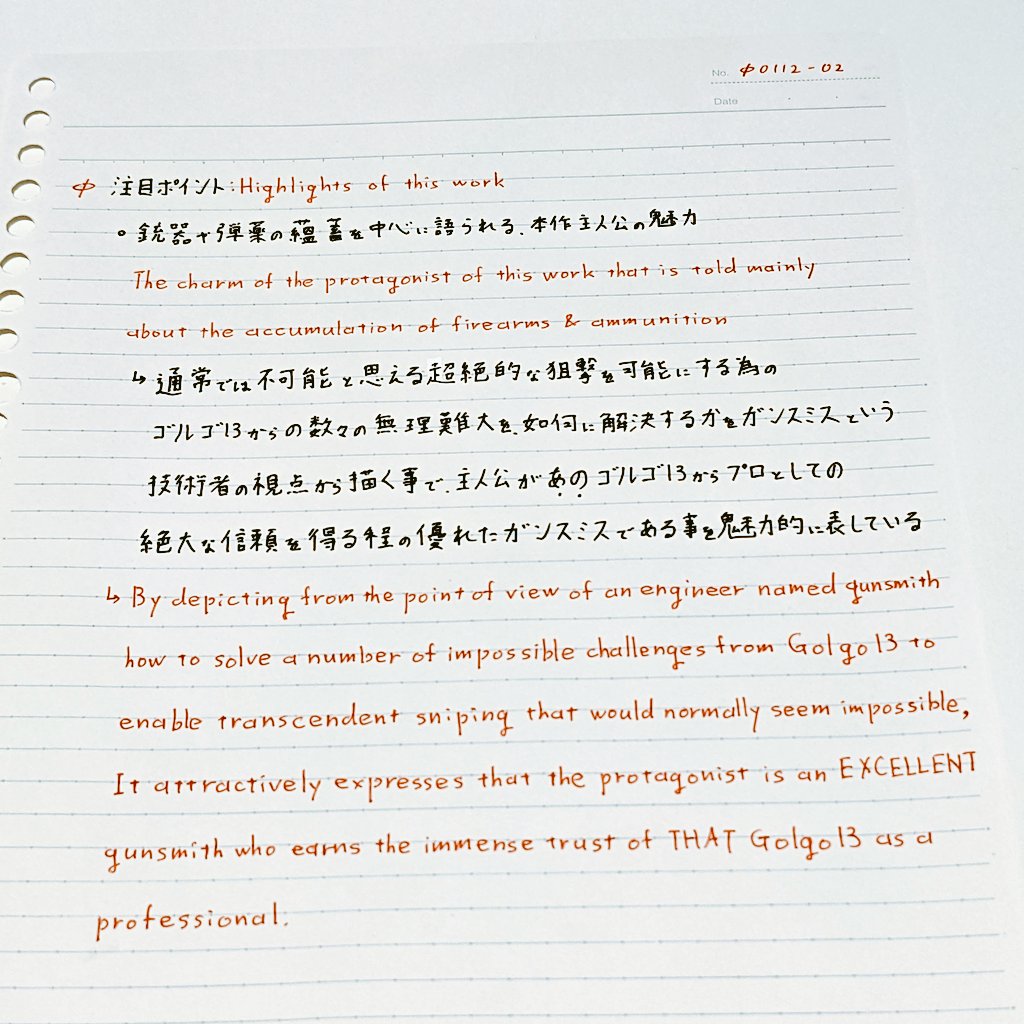 No. φ0112-02
Date
φ 注目ポイント:Highlights of this work
○ 銃器や弾薬の蘊蓄を中心に語られる、本作主人公の魅力
The charm of the protagonist of this work that is told mainly
about the accumulation of firearms & ammunition
↳ 通常では不可能と思える超絶的な狙撃を可能にする為の
ゴルゴ13からの数々の無理難大を、如何に解決するかをガンスミスという
技術者の視点から描く事で、主人公があのゴルゴ13からプロとしての
絶大な信頼を得る程の優れたガンスミスである事を魅力的に表している
↳ By depicting from the point of view of an engineer named gunsmith
how to solve a number of impossible challenges from Golgo13 to
enable transcendent sniping that would normally seem impossible,
It attractively expresses that the protagonist is an EXCELLENT
gunsmith who earns the immense trust of THAT Golgo13 as a
professional.